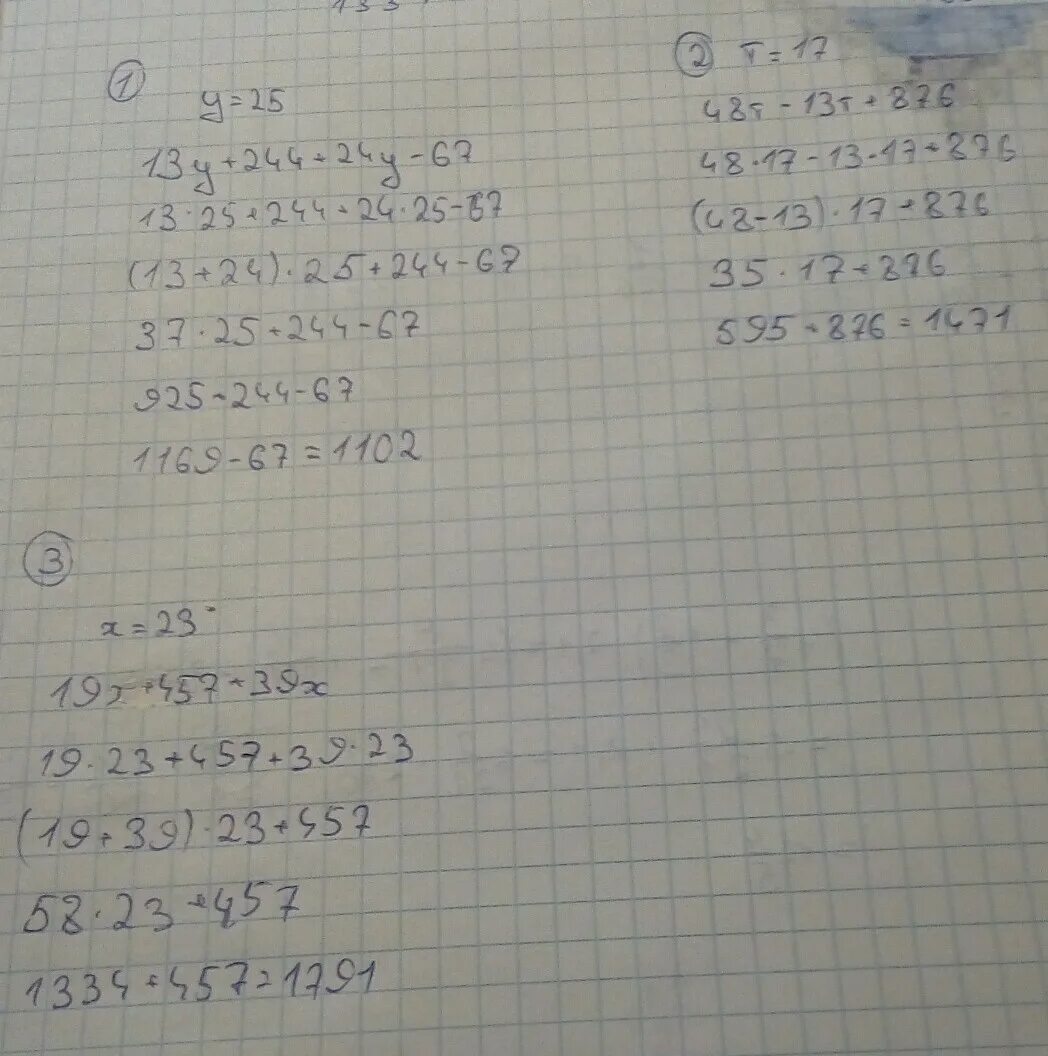 ①
y=25
13y+244+24y-67
13·25+244+24·25-67
(13+24)·25+244-67
37·25+244-67
925+244-67
1169-67=1102
② т=17
48т-13т+876
48·17-13·17+876
(48-13)·17+876
35·17+876
595+876=1471
③
x=23
19x+457+39x
19·23+457+39·23
(19+39)·23+457
58·23+457
1334+457=1791